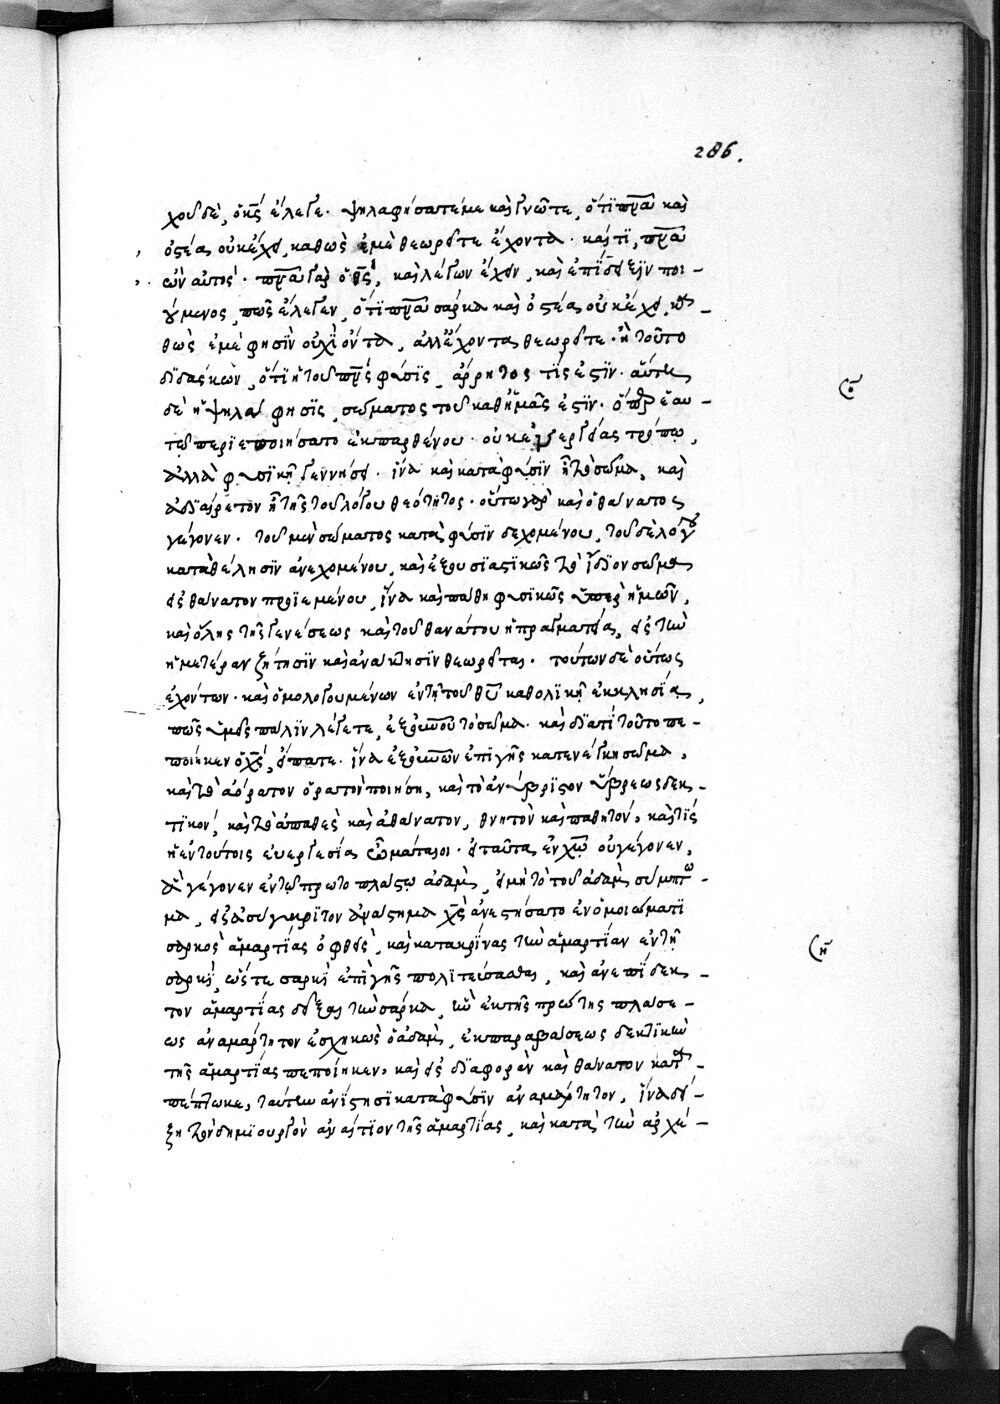 286.
χου δὲ, ὁ κ̅ς̅ ἔλεγε· ψηλαφήσατέ με καὶ γνῶτε, ὅτι π̅ν̅α̅ καὶ
ὀστέα οὐκ ἔχει, καθὼς ἐμὲ θεωρεῖτε ἔχοντα· καίτι, π̅ν̅α̅
ὢν αὐτός· π̅ν̅α̅ γὰρ ὁ θ̅ς̅, καὶ λέγων ἔχειν, καὶ ἐπίδειξιν ποι-
ούμενος, πῶς ἔλεγεν, ὅτι π̅ν̅α̅ σάρκα καὶ ὀστέα οὐκ ἔχει, κα-
θὼς ἐμέ φησὶν οὐχὶ ὄντα, ἀλλ' ἔχοντα θεωρεῖτε· ἢ τοῦτο
διδάσκων, ὅτι ἡ τοῦ π̅ν̅ς̅ φύσις, ἄρρητος τίς ἐστίν· αὕτη
δὲ ἡ ψηλάφησις, σώματος τοῦ καθ' ἡμᾶς ἐστίν· ὅπερ ἑαυ-
τῷ περιεποιήσατο ἐκ παρθένου· οὐκ ἐξ ἐργασίας τρόπω,
ἀλλὰ φυσικῇ γεννήσει· ἵνα καὶ κατὰ φύσιν ᾖ τὸ σῶμα, καὶ
ἀδιαίρετον ᾖ τῆς τοῦ λόγου θεότητος· οὕτω γὰρ καὶ ὁ θάνατος
γέγονεν· τοῦ μὲν σώματος κατὰ φύσιν δεχομένου, τοῦ δὲ λόγου
κατὰ θέλησιν ἀνεχομένου, καὶ ἐξουσιαστικῶς τὸ ἴδιον σῶμα
εἰς θάνατον προϊεμένου, ἵνα καὶ πάθῃ φυσικῶς ὑπὲρ ἡμῶν,
καὶ ὅλης τῆς γενέσεως καὶ τοῦ θανάτου ἡ πραγματεία, εἰς τὴν
ἡμετέραν ζήτησιν καὶ ἀνάκλησιν θεωρεῖται· τούτων δὲ οὕτως
ἐχόντων· καὶ ὁμολογουμένων ἐν τῇ τοῦ θ̅υ̅ καθολικῇ ἐκκλησία,
πῶς ὑμεῖς πάλιν λέγετε, ἐξ οὐ̅ν̅οῦ τὸ σῶμα· καὶ διατί τοῦτο πε-
ποίηκεν ὁ χ̅ς̅, εἴπατε· ἵνα ἐξ οὐ̅ν̅ῶν ἐπὶ γῆς κατενέγκῃ σῶμα,
καὶ τὸ ἀόρατον ὁρατὸν ποιήσῃ, καὶ τὸ ἀνύβριστον ὕβρεως δεκ-
τικόν, καὶ τὸ ἀπαθὲς καὶ ἀθάνατον, θνητὸν καὶ παθητόν, καὶ τίς
ἡ ἐν τούτοις εὐεργεσία ὦ μάταιοι· εἰ ταῦτα ἐν χ̅ω̅ οὐ γέγονεν,
ἃ γέγονεν ἐν τῷ πρωτοπλάστῳ ἀδάμ, εἰ μὴ τὸ τοῦ ἀδὰμ σύμπτω-
μα, εἰς ἀσύγκριτον ἀνάστημα χ̅ς̅ ἀνεστήσατο ἐν ὁμοιώματι
σαρκὸς ἁμαρτίας ὀφθεὶς, καὶ κατακρίνας τὴν ἁμαρτίαν ἐν τῇ
σαρκί, ὥστε σαρκὶ ἐπὶ γῆς πολιτεύσασθαι, καὶ ἀνεπίδεκ-
τον ἁμαρτίας δεῖξαι τὴν σάρκα, ἣν ἐκ τῆς πρώτης πλάσε-
ως ἀναμάρτητον ἐσχηκὼς ὁ ἀδὰμ, ἐκ παραβάσεως δεκτικὴν
τῆς ἁμαρτίας πεποίηκεν, καὶ εἰς διαφορὰν καὶ θάνατον κατα-
πέπτωκε, ταύτην ἀνίστησι κατὰ φύσιν ἀναμάρτητον, ἵνα δεί-
ξῃ τὸν δημιουργὸν ἀναίτιον τῆς ἁμαρτίας, καὶ κατὰ τὴν ἀρχέ-